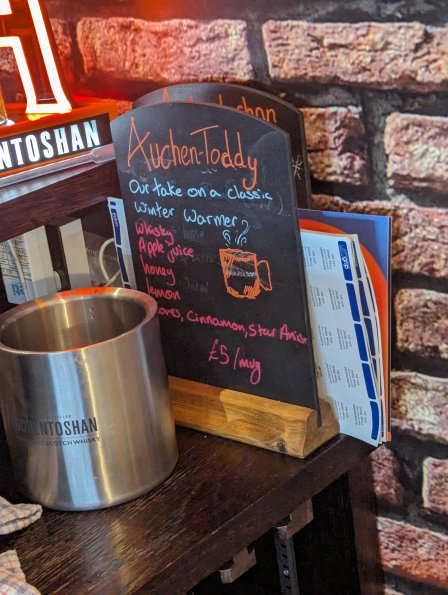 NTOSHAN
Auchentoshan
Auchen-Toddy
Our take on a classic
Winter Warmer
Whisky
Apple juice
Honey
lemon
oves, Cinnamon, Star Anise
£5/mug
NTOSHAN
SCOTCH WHISKY